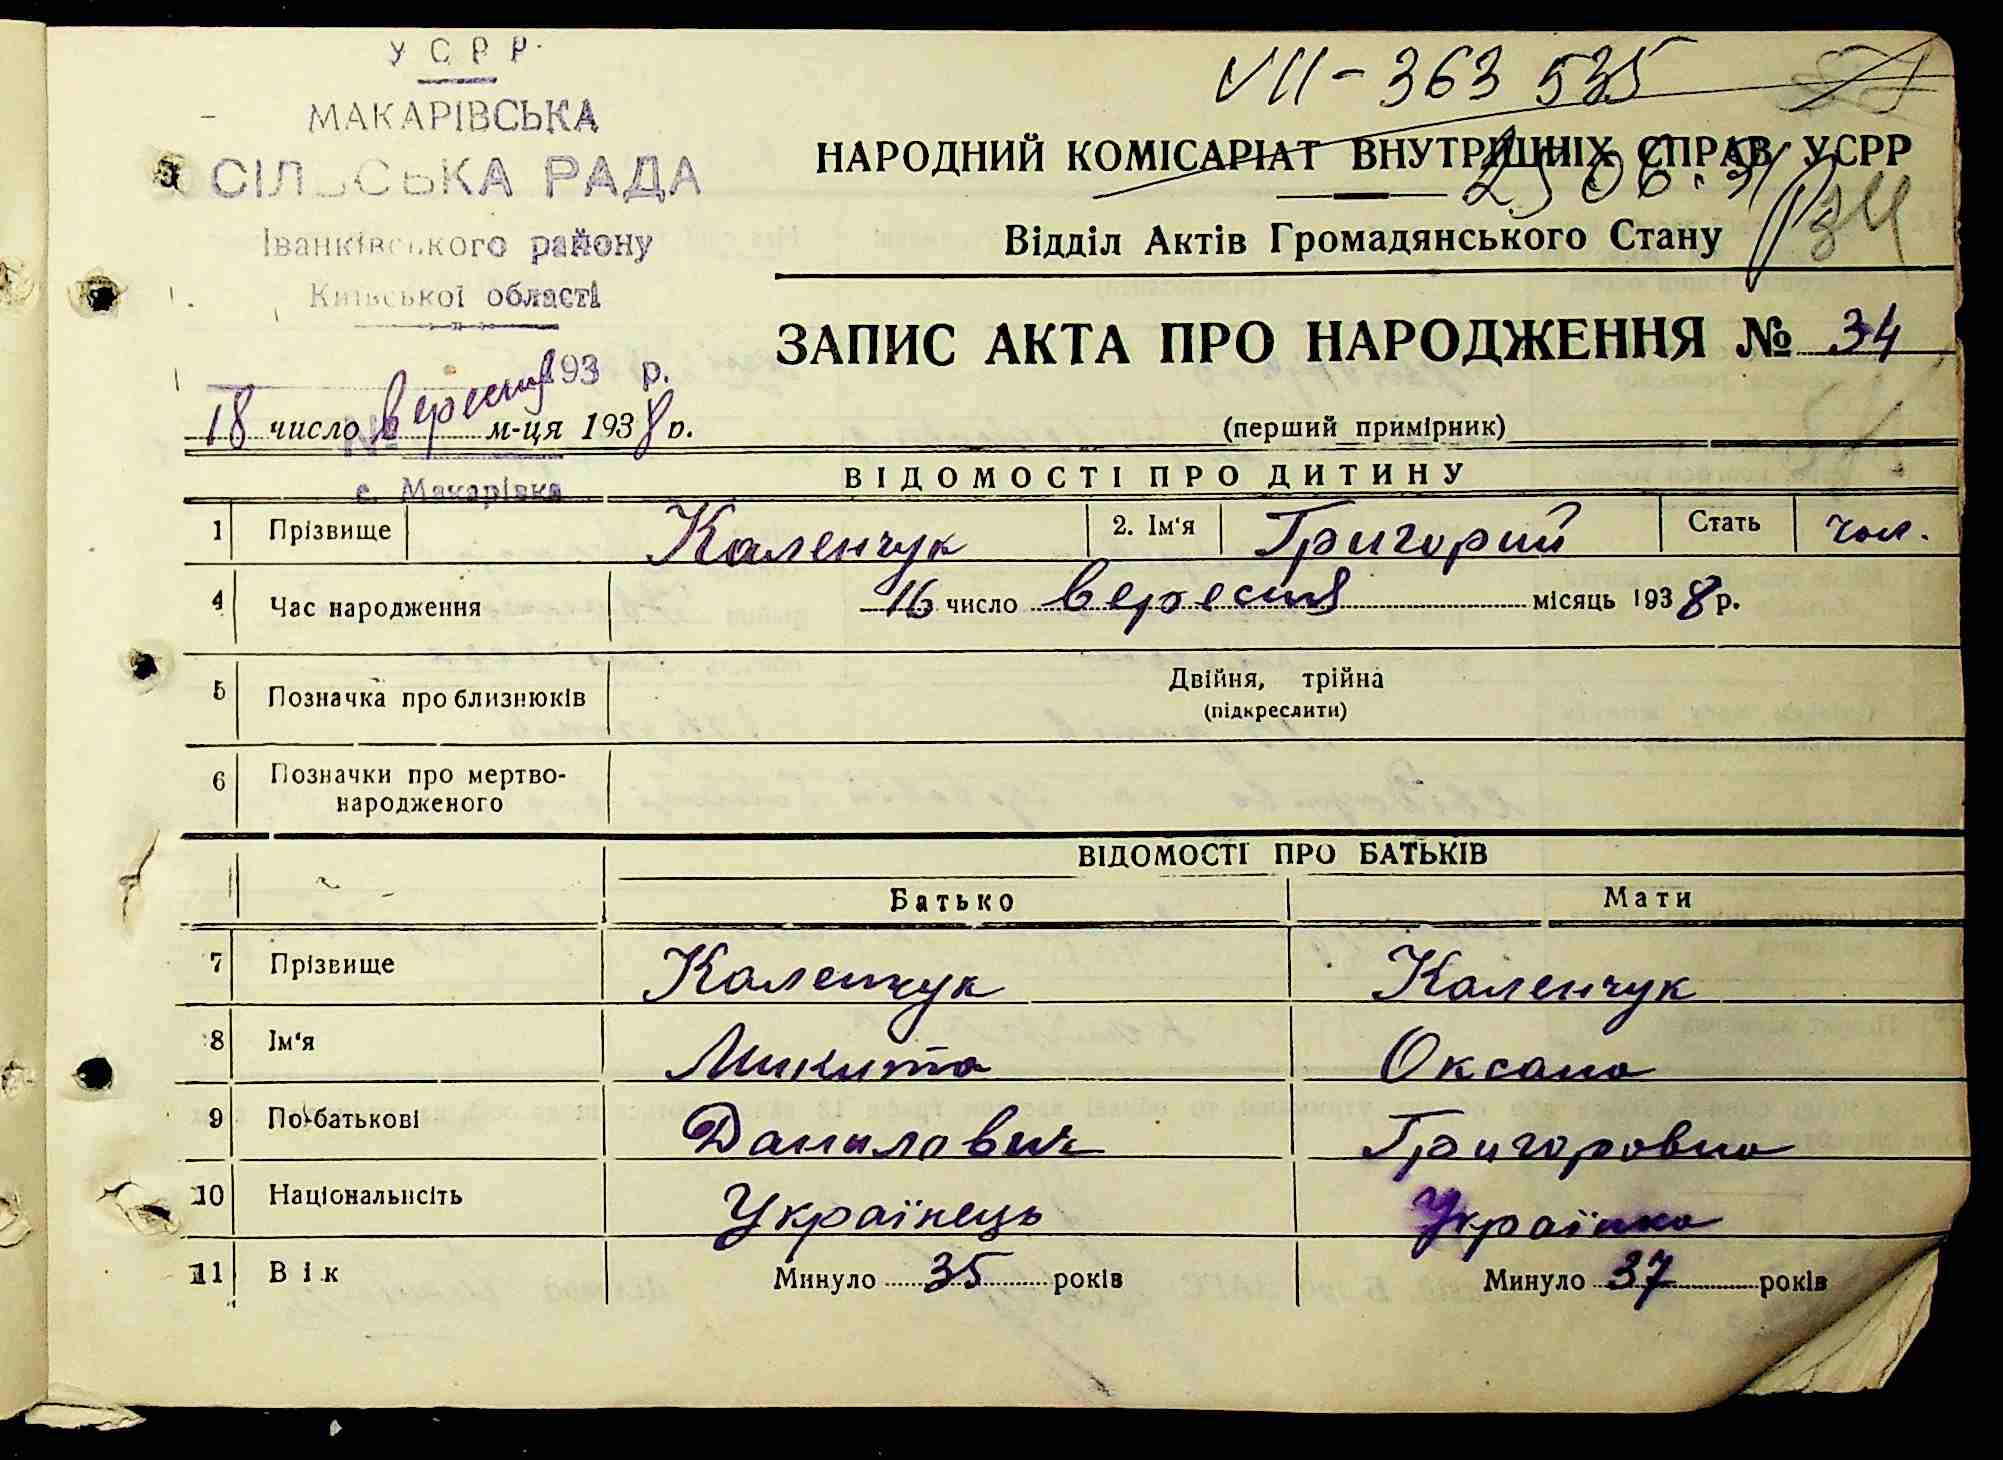 УСРР
МАКАРІВСЬКА
СІЛЬСЬКА РАДА
Іванківського району
Київської області
193 р.
18 число вересня м-ця 1938 р.
№
с. Макарівка
VII-363 535
34
НАРОДНИЙ КОМІСАРІАТ ВНУТРІШНІХ СПРАВ УСРР
Відділ Актів Громадянського Стану
ЗАПИС АКТА ПРО НАРОДЖЕННЯ № 34
(перший примірник)
ВІДОМОСТІ ПРО ДИТИНУ
1 Прізвище Каленчук 2. Ім'я Григорий Стать чол.
4 Час народження 16 число вересня місяць 1938 р.
5 Позначка про близнюків Двійня, трійна
(підкреслити)
6 Позначки про мертво-
народженого
ВІДОМОСТІ ПРО БАТЬКІВ
Батько Мати
7 Прізвище Каленчук Каленчук
8 Ім'я Микита Оксана
9 По-батькові Данилович Григоровна
10 Національність Українець Українка
11 Вік Минуло 35 років Минуло 37 років